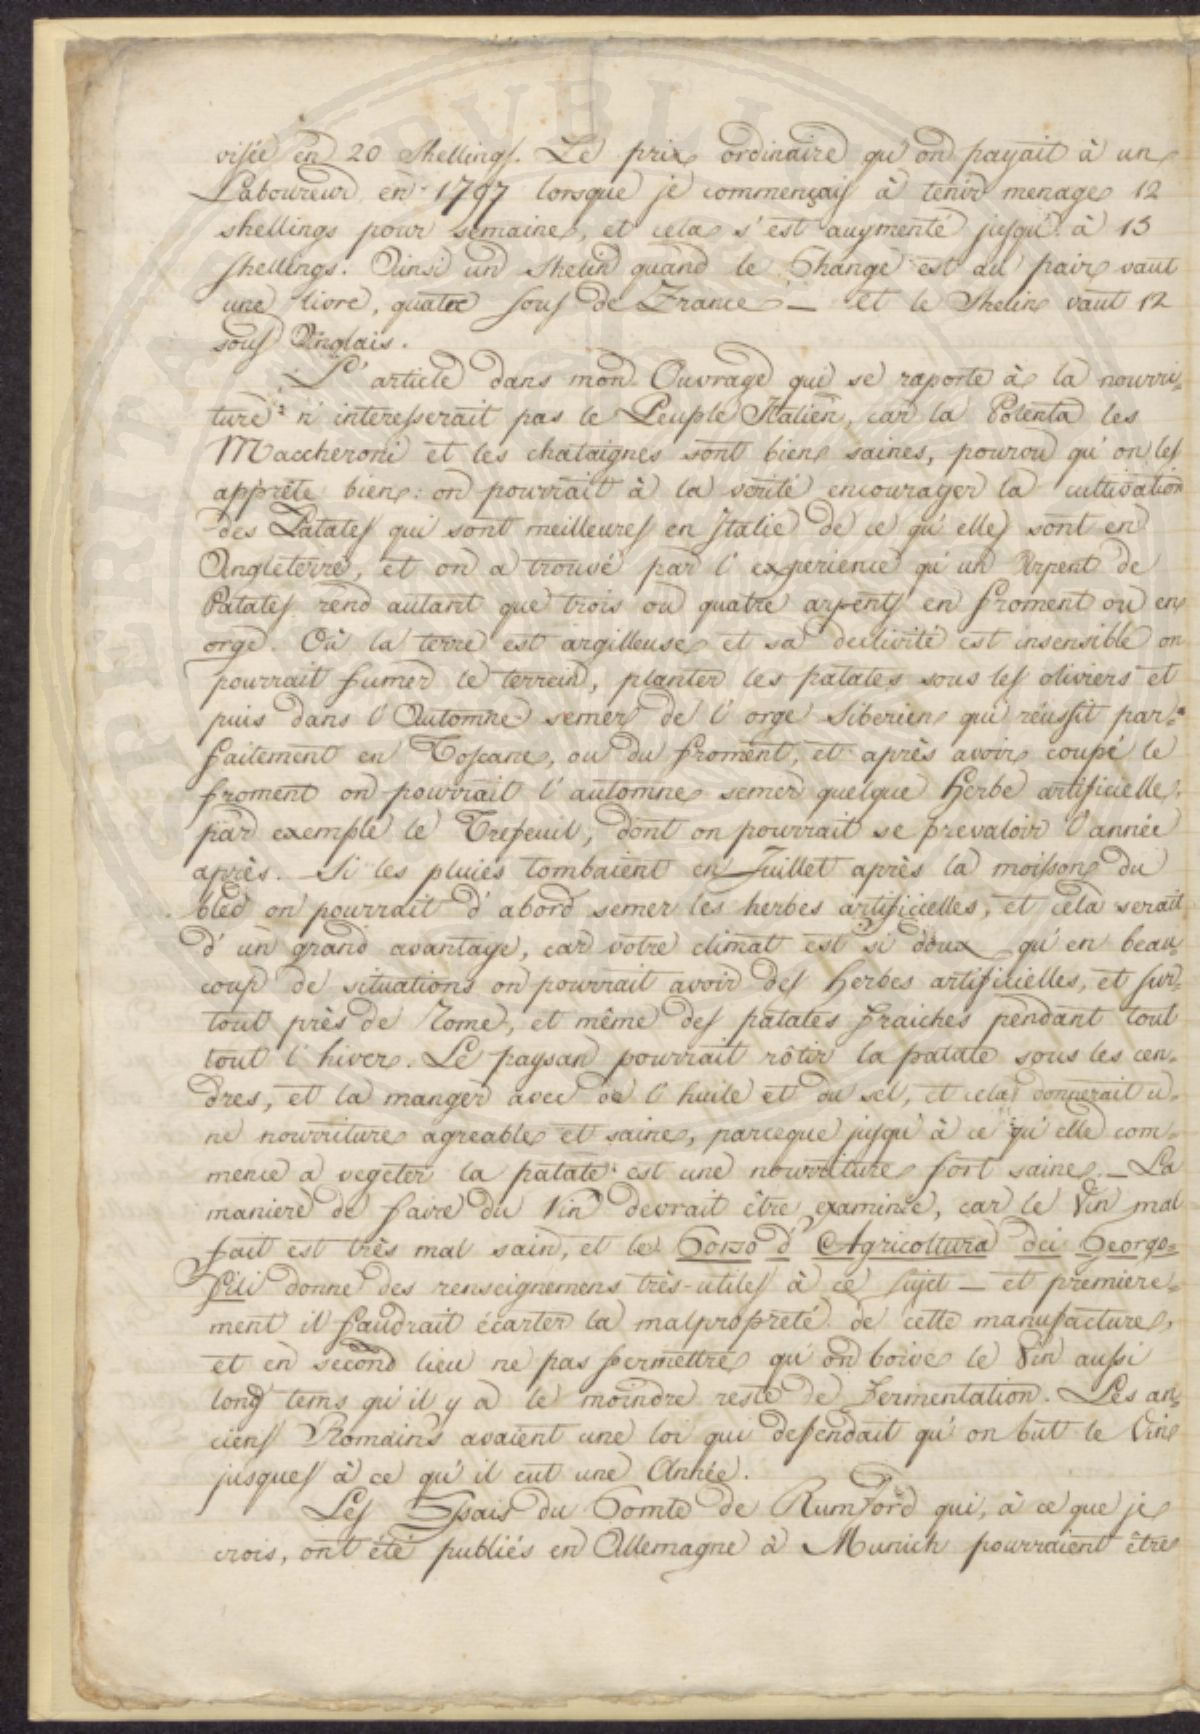 visée en 20 Shellings. Le prix ordinaire qu'on payait à un
Laboureur en 1797 lorsque je commençais à tenir menage 12
shellings pour semaine, et cela s'est augmenté jusqu'à 15
shellings. Ainsi un Shelin quand le Change est au pair vaut
une livre, quatre sous de France — et le Shelin vaut 12
sous Anglais.
L'article dans mon Ouvrage qui se raporte à la nourri-
ture n'interesserait pas le Peuple Italien, car la Polenta les
Maccheroni et les chataignes sont bien saines, pourvu qu'on les
apprête bien: on pourrait à la verité encourager la cultivation
des Patates qui sont meilleures en Italie de ce qu'elles sont en
Angleterre, et on a trouvé par l'experience qu'un Arpent de
Patates rend autant que trois ou quatre arpents en froment ou en
orge. Où la terre est argilleuse et sa declivité est insensible on
pourrait fumer le terrein, planter les patates sous les oliviers et
puis dans l'Automne semer de l'orge Siberien qui réussit par-
faitement en Toscane, ou du froment, et après avoir coupé le
froment on pourrait l'automne semer quelque Herbe artificielle.
par exemple le Trefeuil, dont on pourrait se prevaloir l'année
après. — Si les pluies tombaient en Juillet après la moisson du
bléd on pourrait d'abord semer les herbes artificielles, et cela serait
d'un grand avantage, car votre climat est si doux qu'en beau-
coup de situations on pourrait avoir des Herbes artificielles, et sur-
tout près de Rome, et même des patates fraiches pendant tout
tout l'hiver. Le paysan pourrait rôtir la patate sous les cen-
dres, et la manger avec de l'huile et du sel, et cela donnerait u-
ne nourriture agreable et saine, parceque jusqu'à ce qu'elle com-
mence a vegeter la patate est une nourriture fort saine. — La
maniere de faire du Vin devrait être examinée, car le Vin mal
fait est très mal sain, et le Corso d'Agricoltura dei Georgo-
fili donne des renseignemens très-utiles à ce sujet — et premiere-
ment il faudrait écarter la malpropreté de cette manufacture,
et en second lieu ne pas permettre qu'on boive le Vin aussi
long tems qu'il y a le moindre reste de Fermentation. Les an-
ciens Romains avaient une loi qui defendait qu'on but le Vin
jusques à ce qu'il eut une Année.
Les Essais du Comte de Rumford qui, à ce que je
crois, ont été publiés en Allemagne à Munich pourraient être